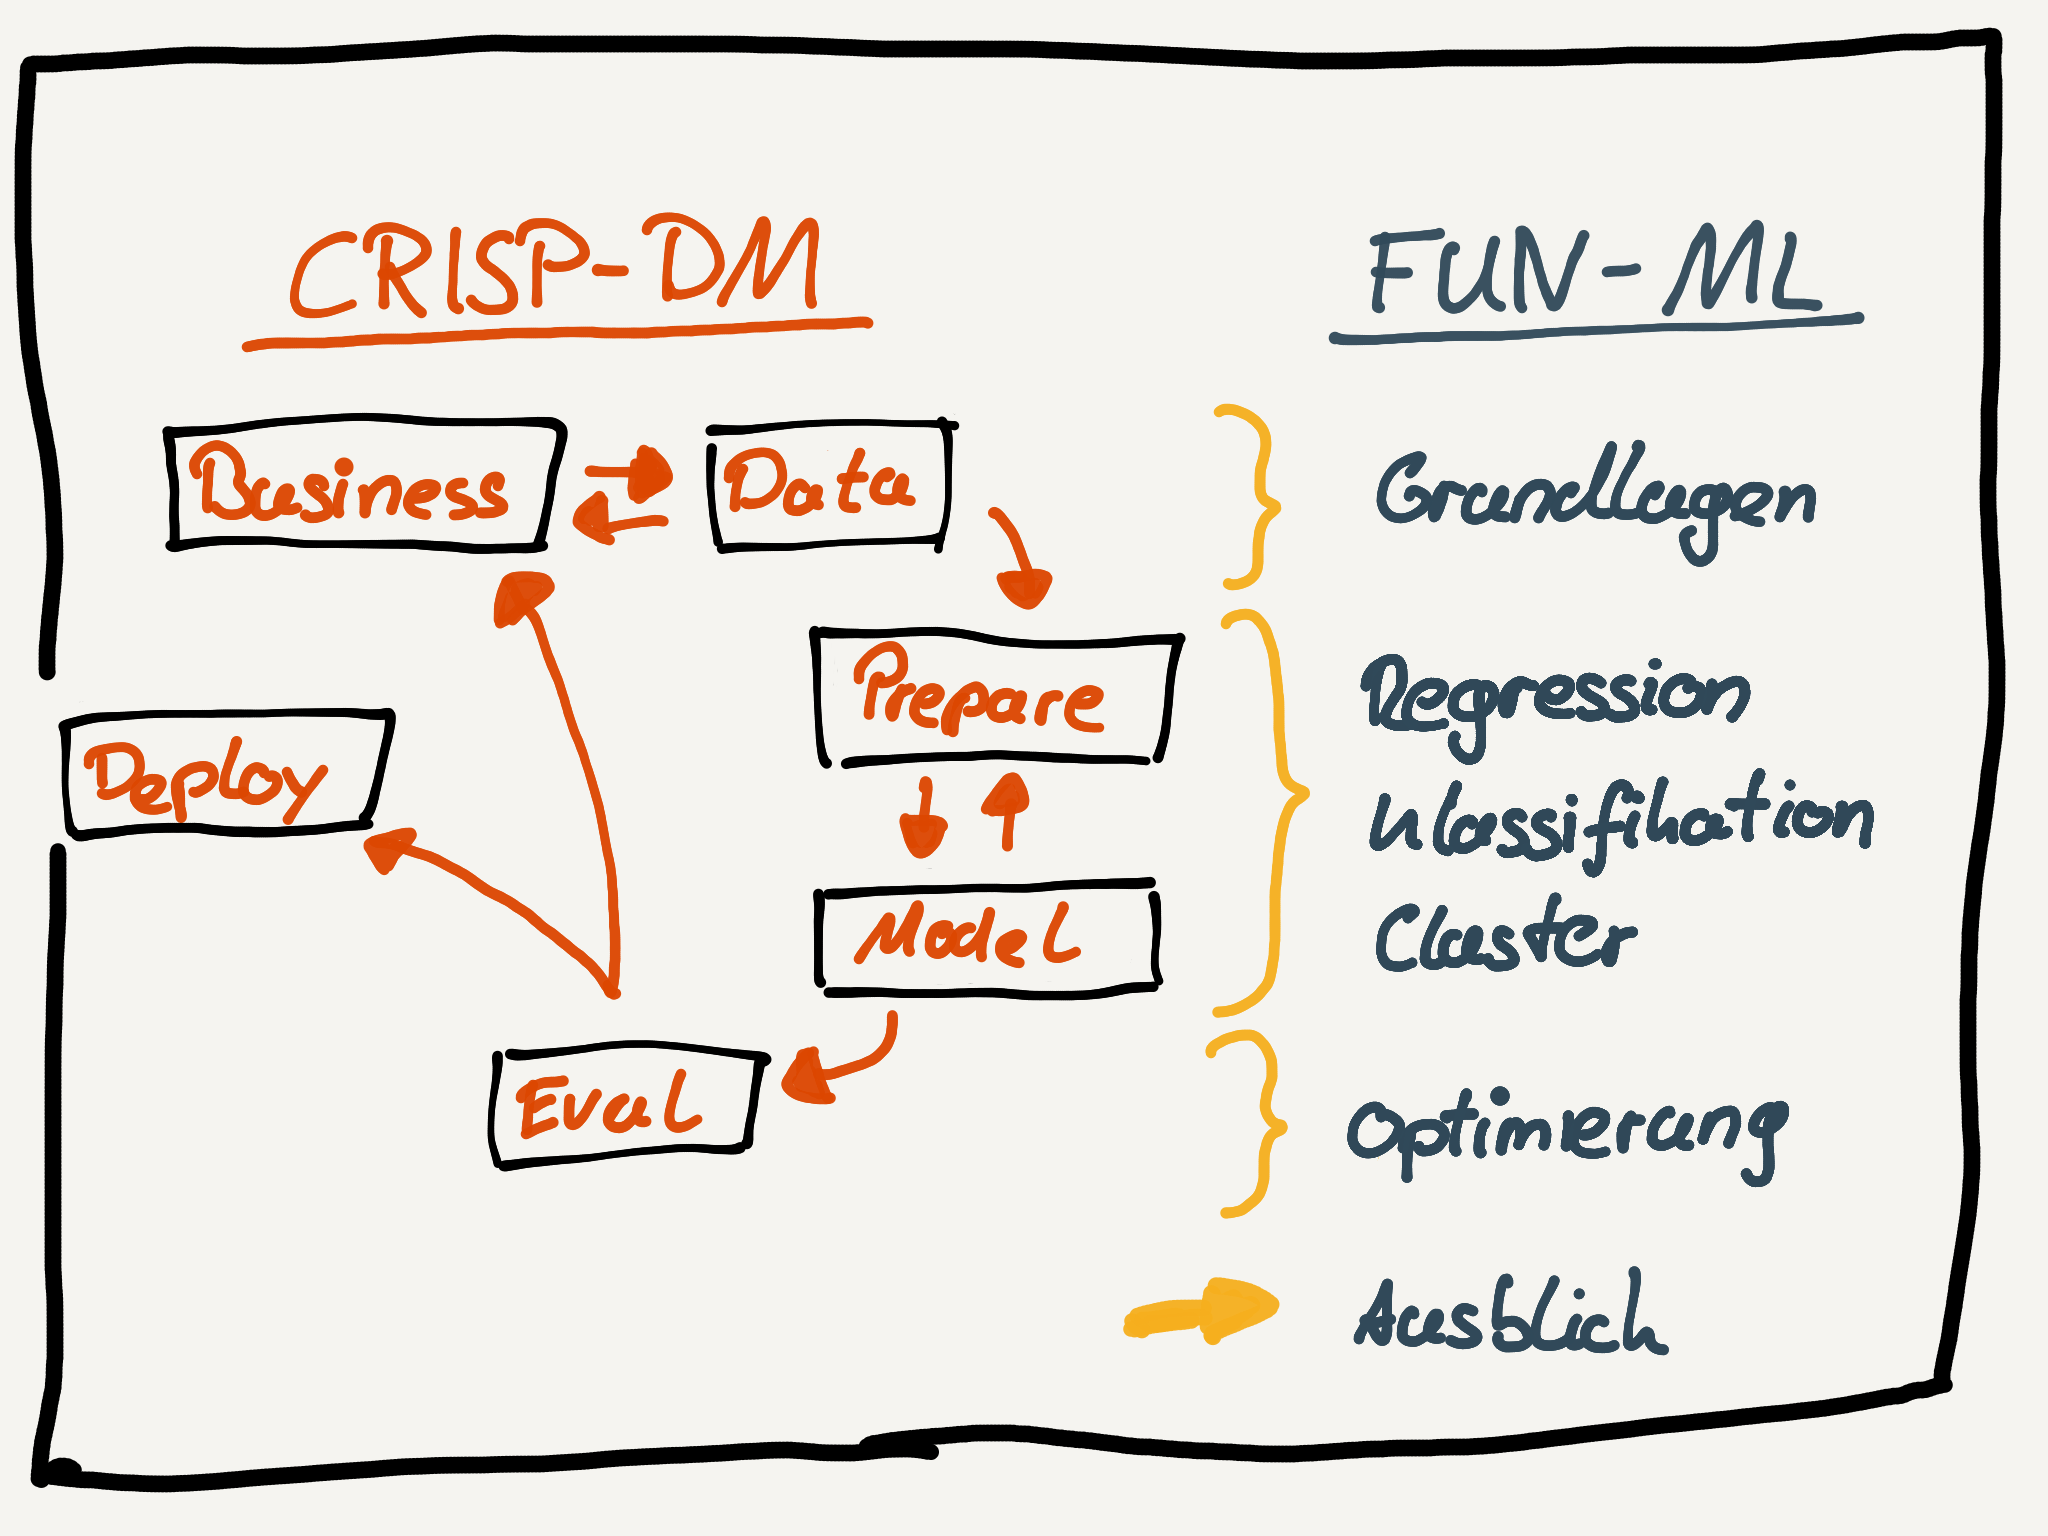 CRISP-DM
FUN-ML
Business
Data
Prepare
Model
Eval
Deploy
Grundlagen
Regression
Klassifikation
Cluster
Optimierung
Ausblick